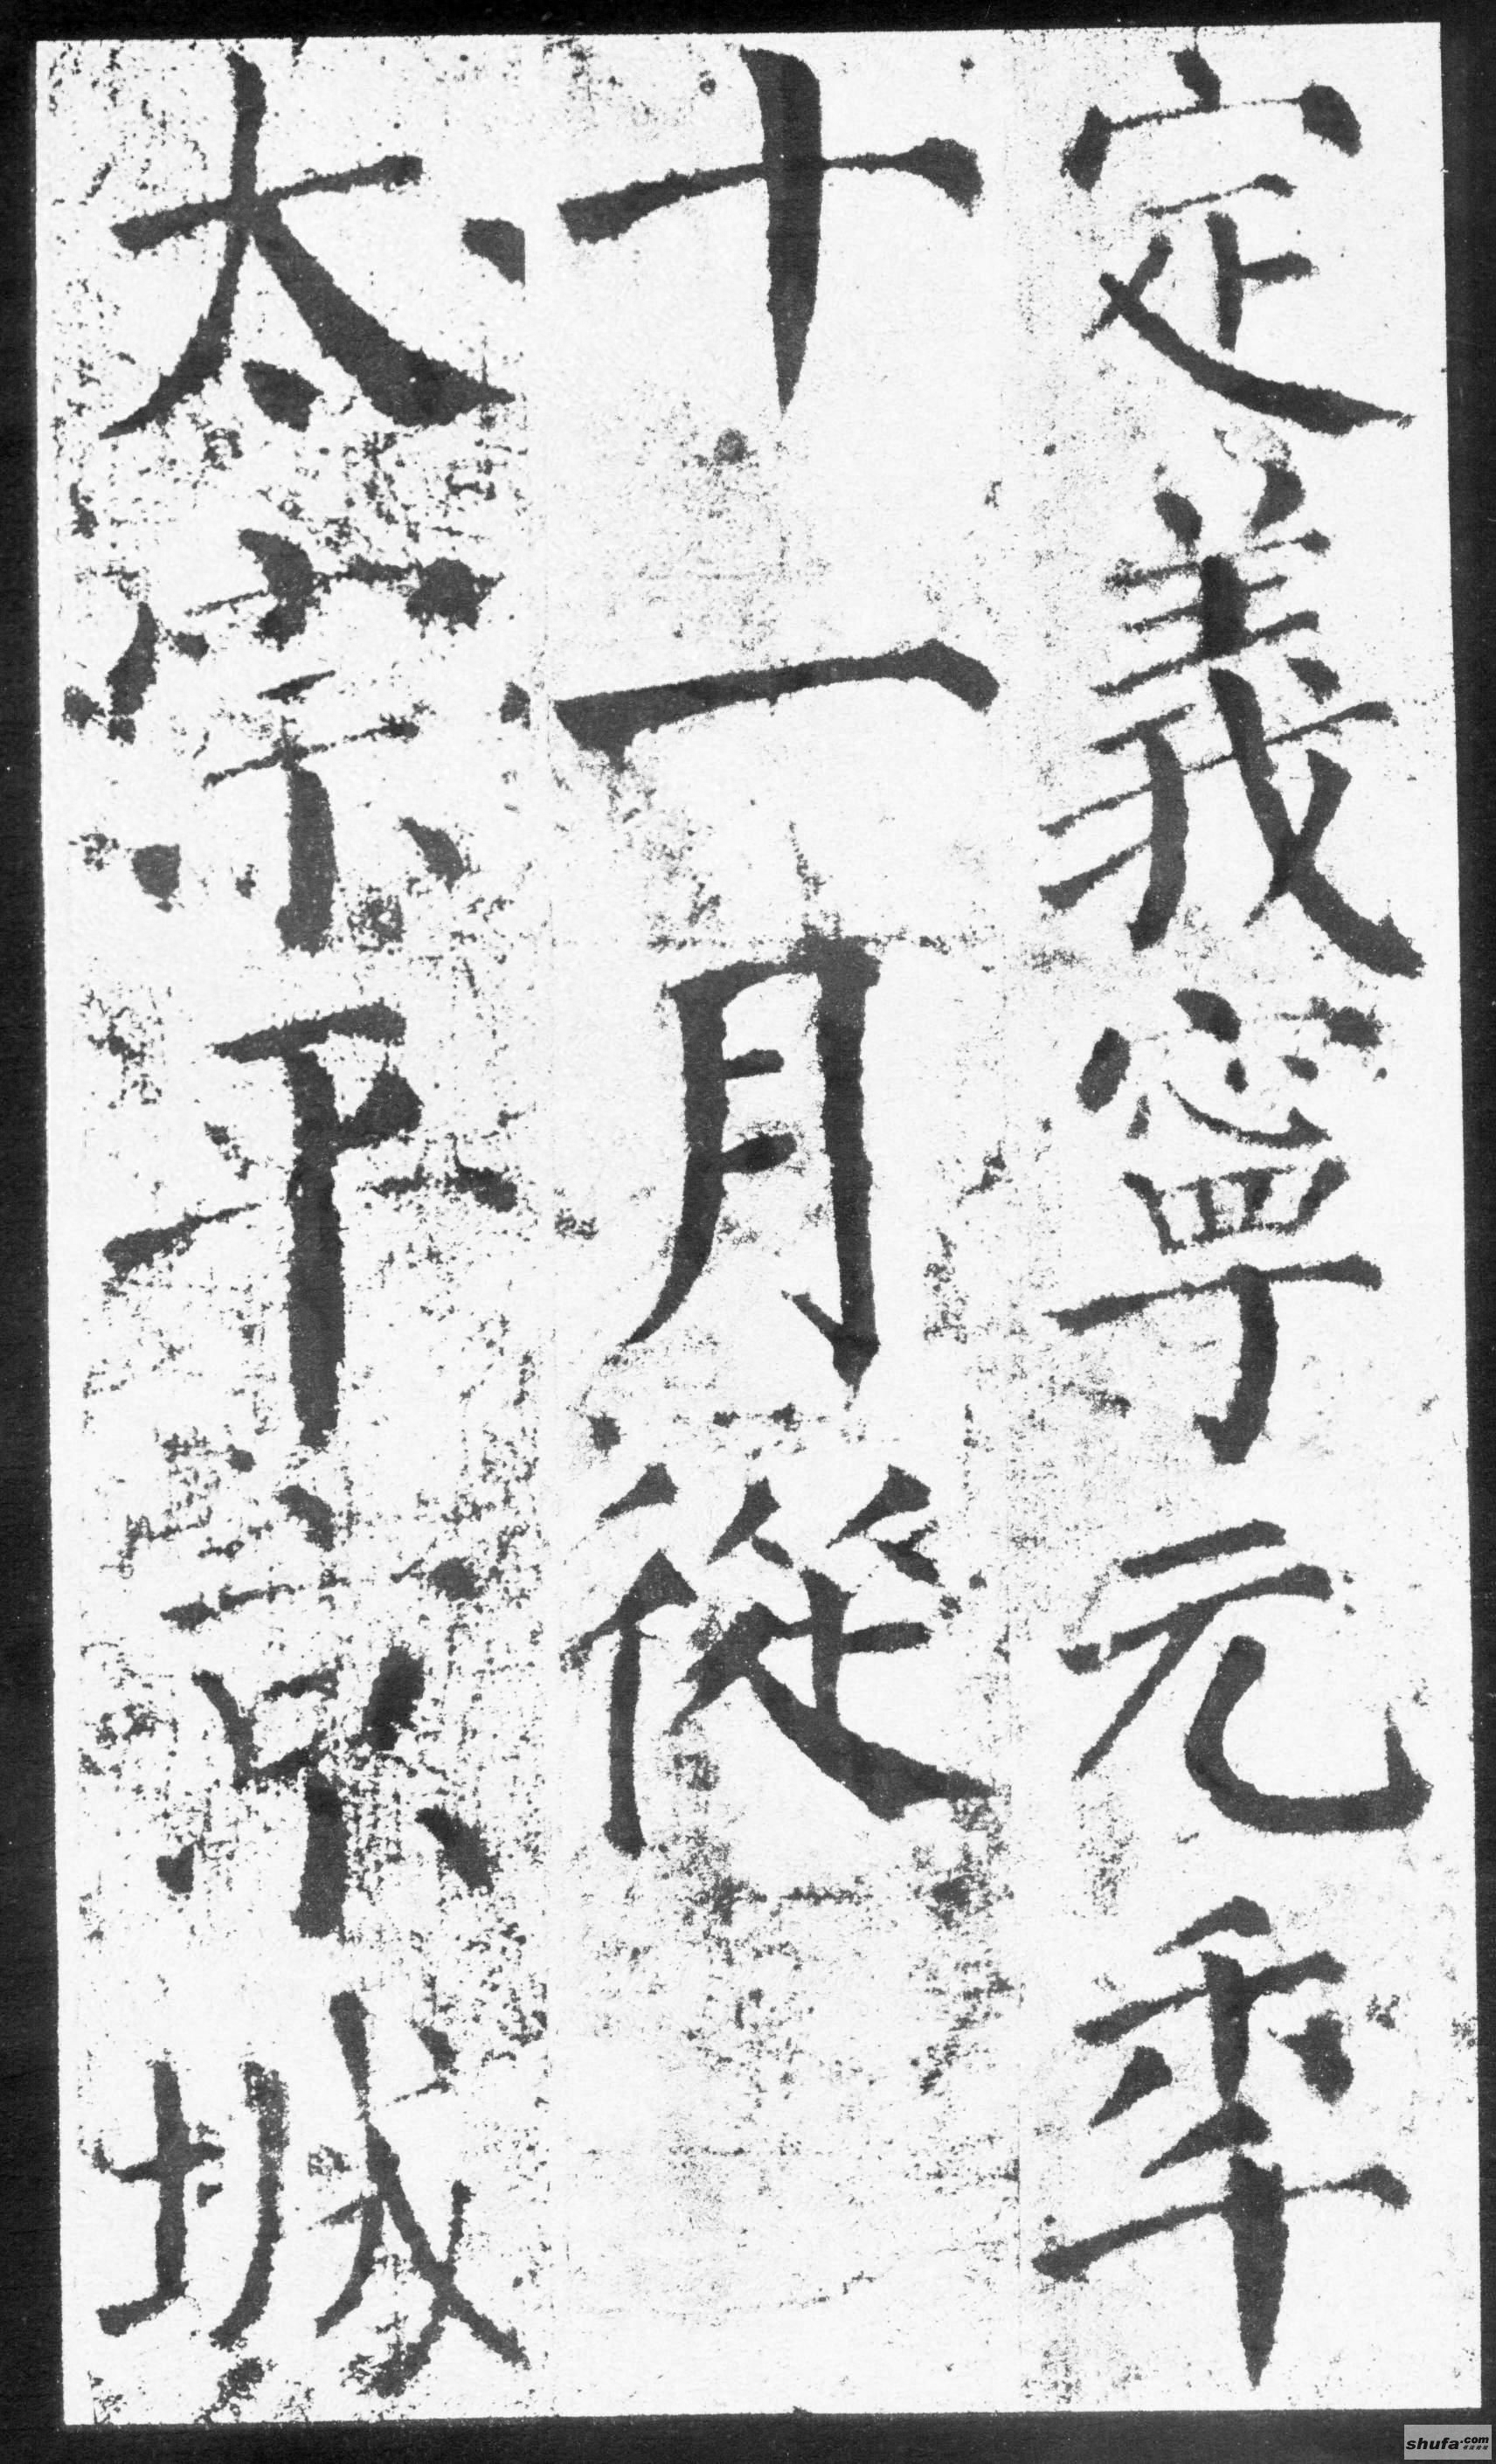 定義寧元年
十一月從
太宗平京城
shufa.com